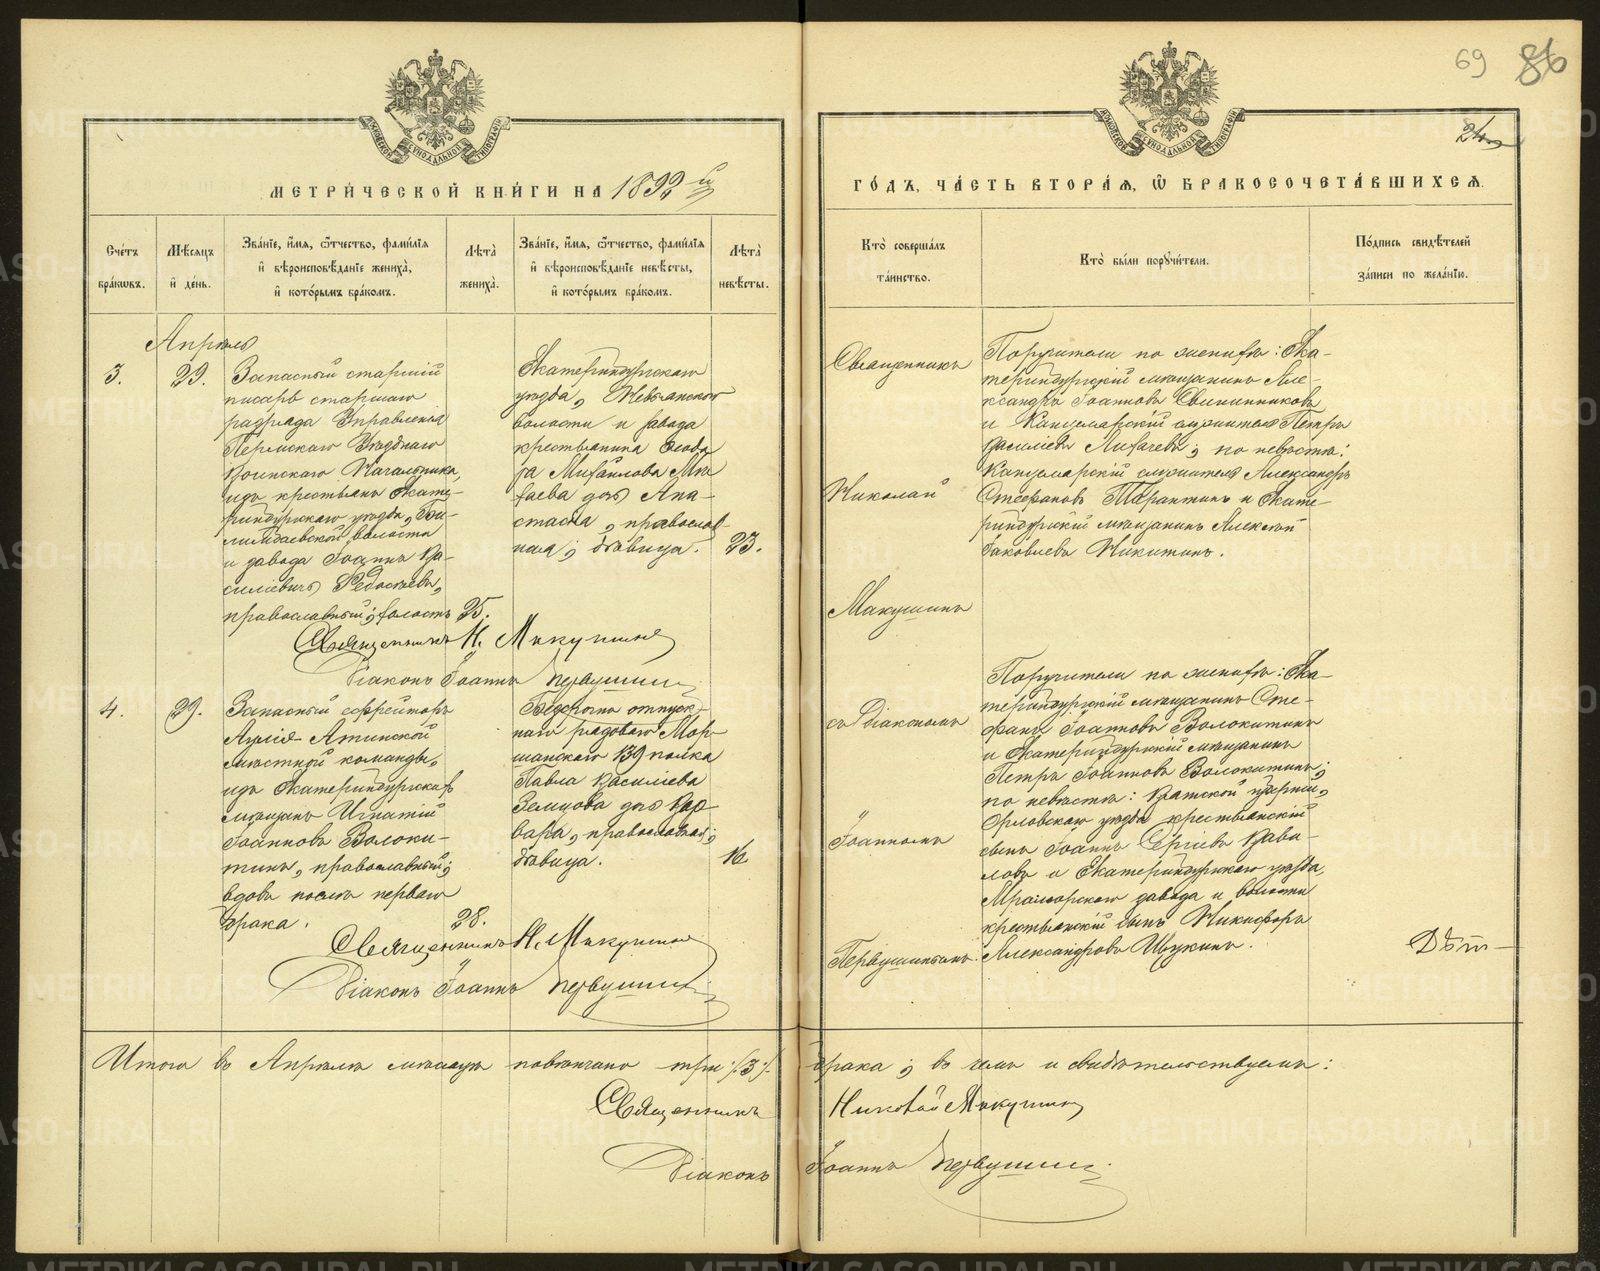 69 86
24
МЕТРИ́ЧЕСКОЙ КНИ́ГИ НА 1899 й
ГО́ДЪ, ЧА́СТЬ ВТОРА́Я, Ѽ БРАКОСОЧЕТА́ВШИХСЯ.
Сче́тъ бра́кѡвъ.
Мѣ́сяцъ и҆ де́нь.
Зва́нїе, и҆́мя, ѻ҆́тчество, фами́лїя
и҆ вѣроисповѣ́данїе жениха̀,
и҆ кото́рымъ бра́комъ.
Лѣ́та̀ жениха̀.
Зва́нїе, и҆́мя, ѻ҆́тчество, фами́лїя
и҆ вѣроисповѣ́данїе невѣ́сты,
и҆ кото́рымъ бра́комъ.
Лѣ́та̀ невѣ́сты.
Кто̀ соверша́лъ
та́инство.
Кто̀ бы́ли поручи́тели.
По́дпись свидѣ́телей
за́писи по жела́нїю.
Апрѣль
3.
29.
Запасный старшій
писарь старшаго
разряда Управленія
Пермскаго Уѣзднаго
Воинскаго Начальника,
изъ крестьянъ Екате-
ринбургскаго уѣзда, Би-
лимбаевской волости
и завода Іоаннъ Ва-
сильевичъ
православный; холостъ
25.
Екатеринбургскаго
уѣзда, Невьянской
волости и завода
крестьянина
ра Михайлова Ми-
хаева дочь Ана-
стасія, православ-
ная; дѣвица.
23.
Священникъ Н. Макушинъ
Діаконъ Іоаннъ Первушинъ
Священникъ
Николай
Макушинъ
съ Діакономъ
Іоанномъ
Первушинымъ.
Поручители по женихѣ: Ека-
теринбургскій мѣщанинъ Але-
ксандръ Іоанновъ Свининниковъ
и Канцелярскій служитель Петръ
Василіевъ Лихачевъ; по невѣстѣ:
Канцелярскій служитель Александръ
Стефановъ Тарантинъ и Екате-
ринбургскій мѣщанинъ Алексѣй
Іаковлевъ Никитинъ.
4.
29.
Запасный ефрейторъ
Аулія-Атинской
мѣстной команды,
изъ Екатеринбургскихъ
мѣщанъ Игнатій
Іоанновъ Волоки-
тинъ, православный;
вдовъ послѣ перваго
брака.
28.
Безсрочно отпуск-
наго рядоваго Мор-
шанскаго 139 полка
Павла Василіева
Земцова дочь Вар-
вара, православная;
дѣвица.
16
Поручители по женихѣ: Ека-
теринбургскій мѣщанинъ Сте-
фанъ Іоанновъ Волокитинъ
и Екатеринбургскій мѣщанинъ
Петръ Іоанновъ Волокитинъ;
по невѣстѣ: Вятской губерніи,
Орловскаго уѣзда крестьянскій
сынъ Іоаннъ Сергіевъ Вави-
ловъ и Екатеринбургскаго уѣзда,
Мраморскаго завода и волости
крестьянскій сынъ Никифоръ
Александровъ Щукинъ.
Священникъ Н. Макушинъ
Діаконъ Іоаннъ Первушинъ
Итого въ Апрѣлѣ мѣсяцѣ повѣнчано три /3/ брака; въ чемъ и свидѣтельствуемъ:
Священникъ Николай Макушинъ
Діаконъ Іоаннъ Первушинъ
METRIKI.GASO-URAL.RU